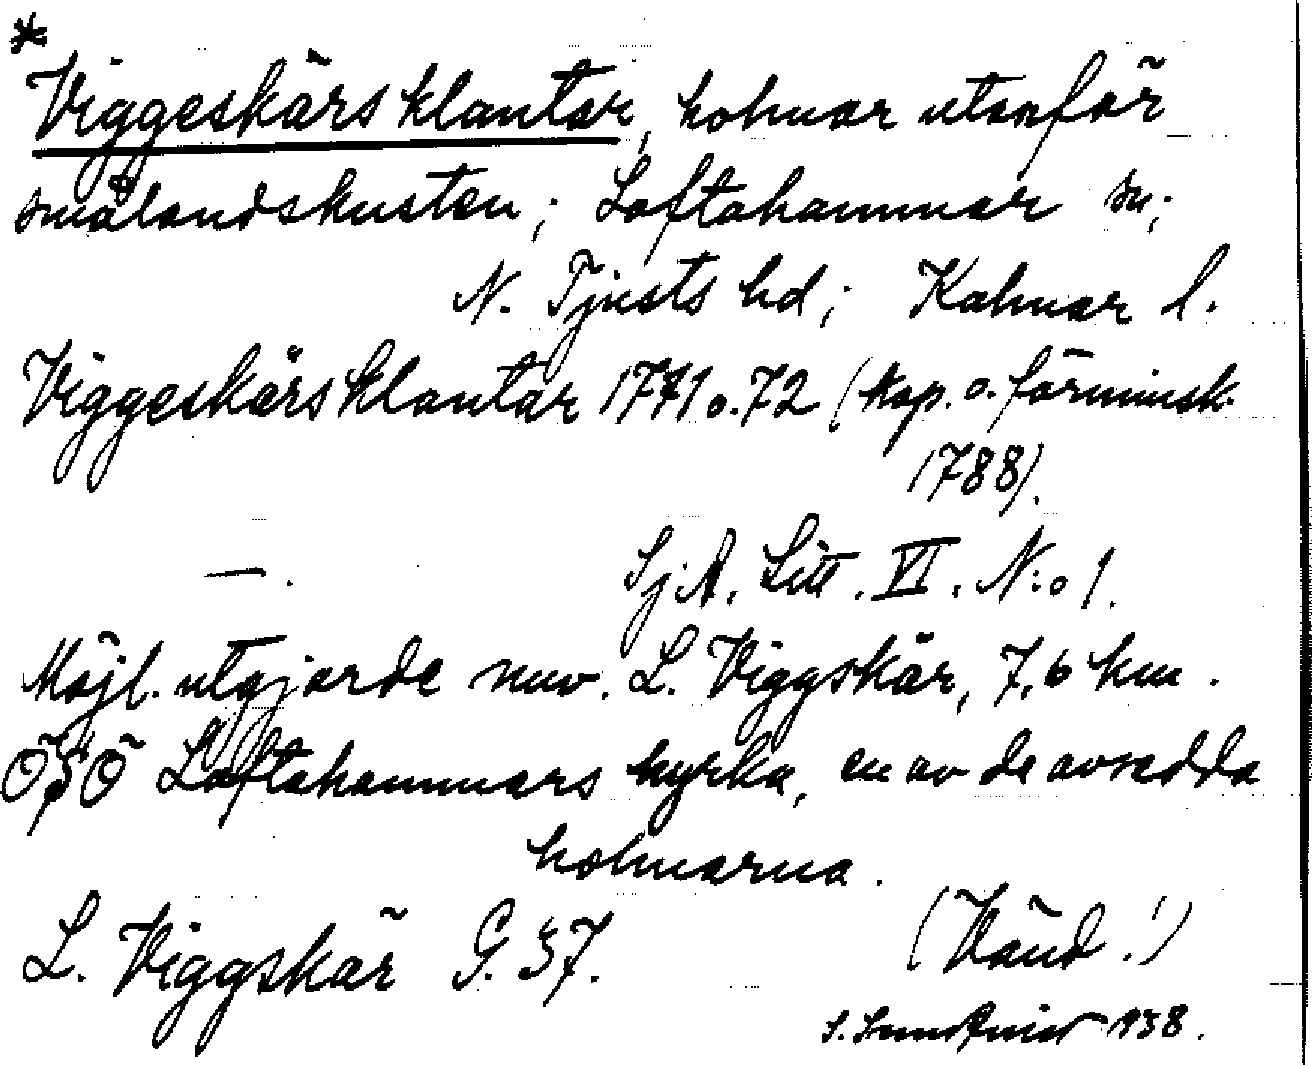 *
Viggeskärs klantar, holmar utanför
smålandskusten; Loftahammar sn;
N. Tjusts hd; Kalmar l.
Viggeskärs klantar 1771 o. 72 (Kop. o. förminsk.
1788).
—. Sj.A. Litt. VI. N:o 1.
Möjl. utgjorde nuv. L. Viggskär, 7,6 km.
ÖSÖ Loftahammars kyrka, en av de avsedda
holmarna.
L. Viggskär G. 37. (Vänd!)
S. Sundqvist 1938.